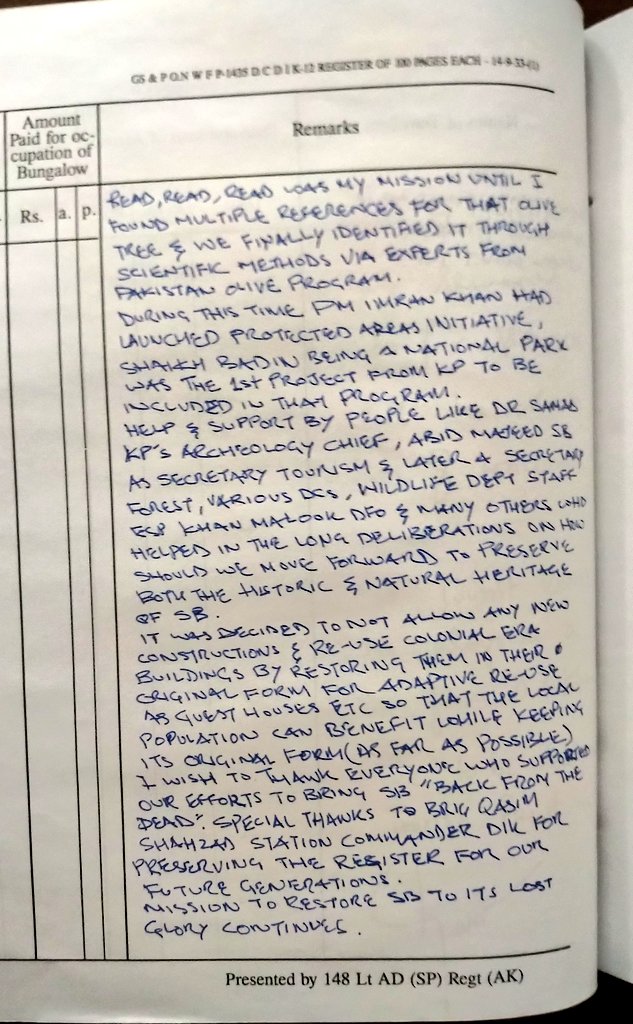 GS & P O.N W F P-1435 D C D I K-12 REGISTER OF 100 PAGES EACH - 14-9-33-(1)
Amount
Paid for oc-
cupation of
Bungalow
Remarks
Rs. a. p.
READ, READ, READ WAS MY MISSION UNTIL I
FOUND MULTIPLE REFERENCES FOR THAT OLIVE
TREE & WE FINALLY IDENTIFIED IT THROUGH
SCIENTIFIC METHODS VIA EXPERTS FROM
PAKISTAN OLIVE PROGRAM.
DURING THIS TIME PM IMRAN KHAN HAD
LAUNCHED PROTECTED AREAS INITIATIVE,
SHAIKH BADIN BEING A NATIONAL PARK
WAS THE 1st PROJECT FROM KP TO BE
INCLUDED IN THAT PROGRAM.
HELP & SUPPORT BY PEOPLE LIKE DR SAMAD
KP'S ARCHEOLOGY CHIEF, ABID MAJEED SB
AS SECRETARY TOURISM & LATER A SECRETARY
FOREST, VARIOUS DCS, WILDLIFE DEPT STAFF
ESP KHAN MALOOK DFO & MANY OTHERS WHO
HELPED IN THE LONG DELIBERATIONS ON HOW
SHOULD WE MOVE FORWARD TO PRESERVE
BOTH THE HISTORIC & NATURAL HERITAGE
OF SB.
IT WAS DECIDED TO NOT ALLOW ANY NEW
CONSTRUCTIONS & RE-USE COLONIAL ERA
BUILDINGS BY RESTORING THEM IN THEIR
ORIGINAL FORM FOR ADAPTIVE RE-USE
AS GUEST HOUSES ETC SO THAT THE LOCAL
POPULATION CAN BENEFIT WHILE KEEPING
ITS ORIGINAL FORM (AS FAR AS POSSIBLE)
I WISH TO THANK EVERYONE WHO SUPPORTED
OUR EFFORTS TO BRING SB "BACK FROM THE
DEAD". SPECIAL THANKS TO BRIG QASIM
SHAHZAD STATION COMMANDER DIK FOR
PRESERVING THE REGISTER FOR OUR
FUTURE GENERATIONS.
MISSION TO RESTORE SB TO ITS LOST
GLORY CONTINUES.
Presented by 148 Lt AD (SP) Regt (AK)